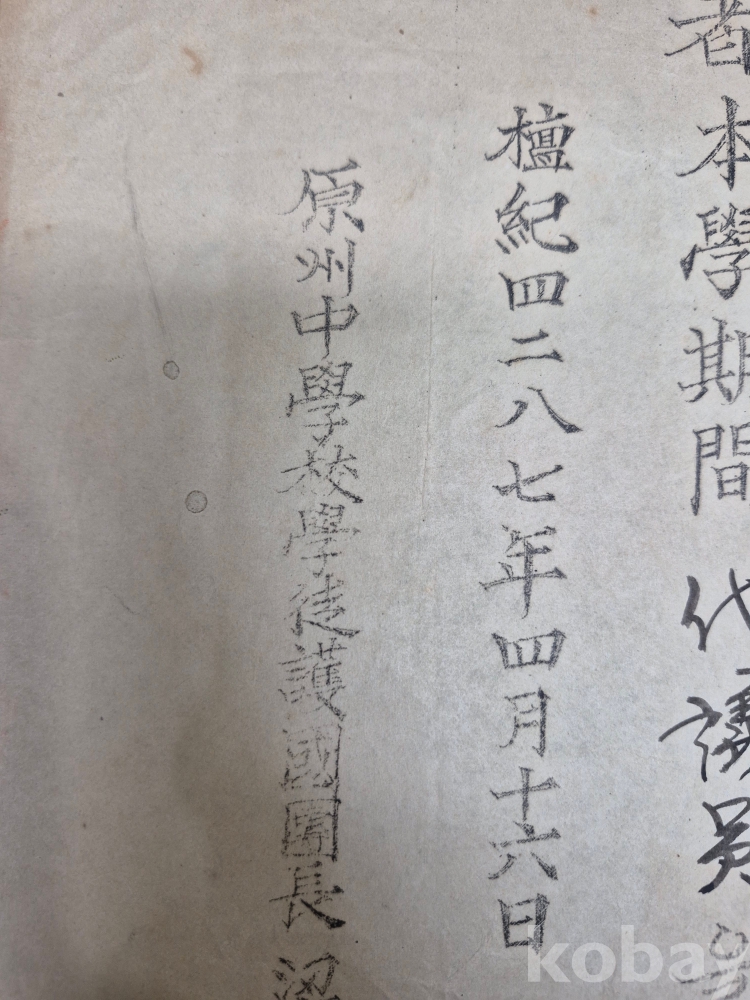 者本學期間 代議員
檀紀四二八七年四月十六日
原州中學校學徒護國團長 梁
kobay